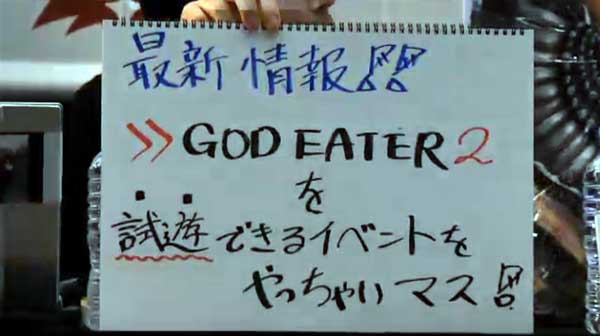 最新情報!!
>>GOD EATER 2
を
試遊できるイベントを
やっちゃいマス!!